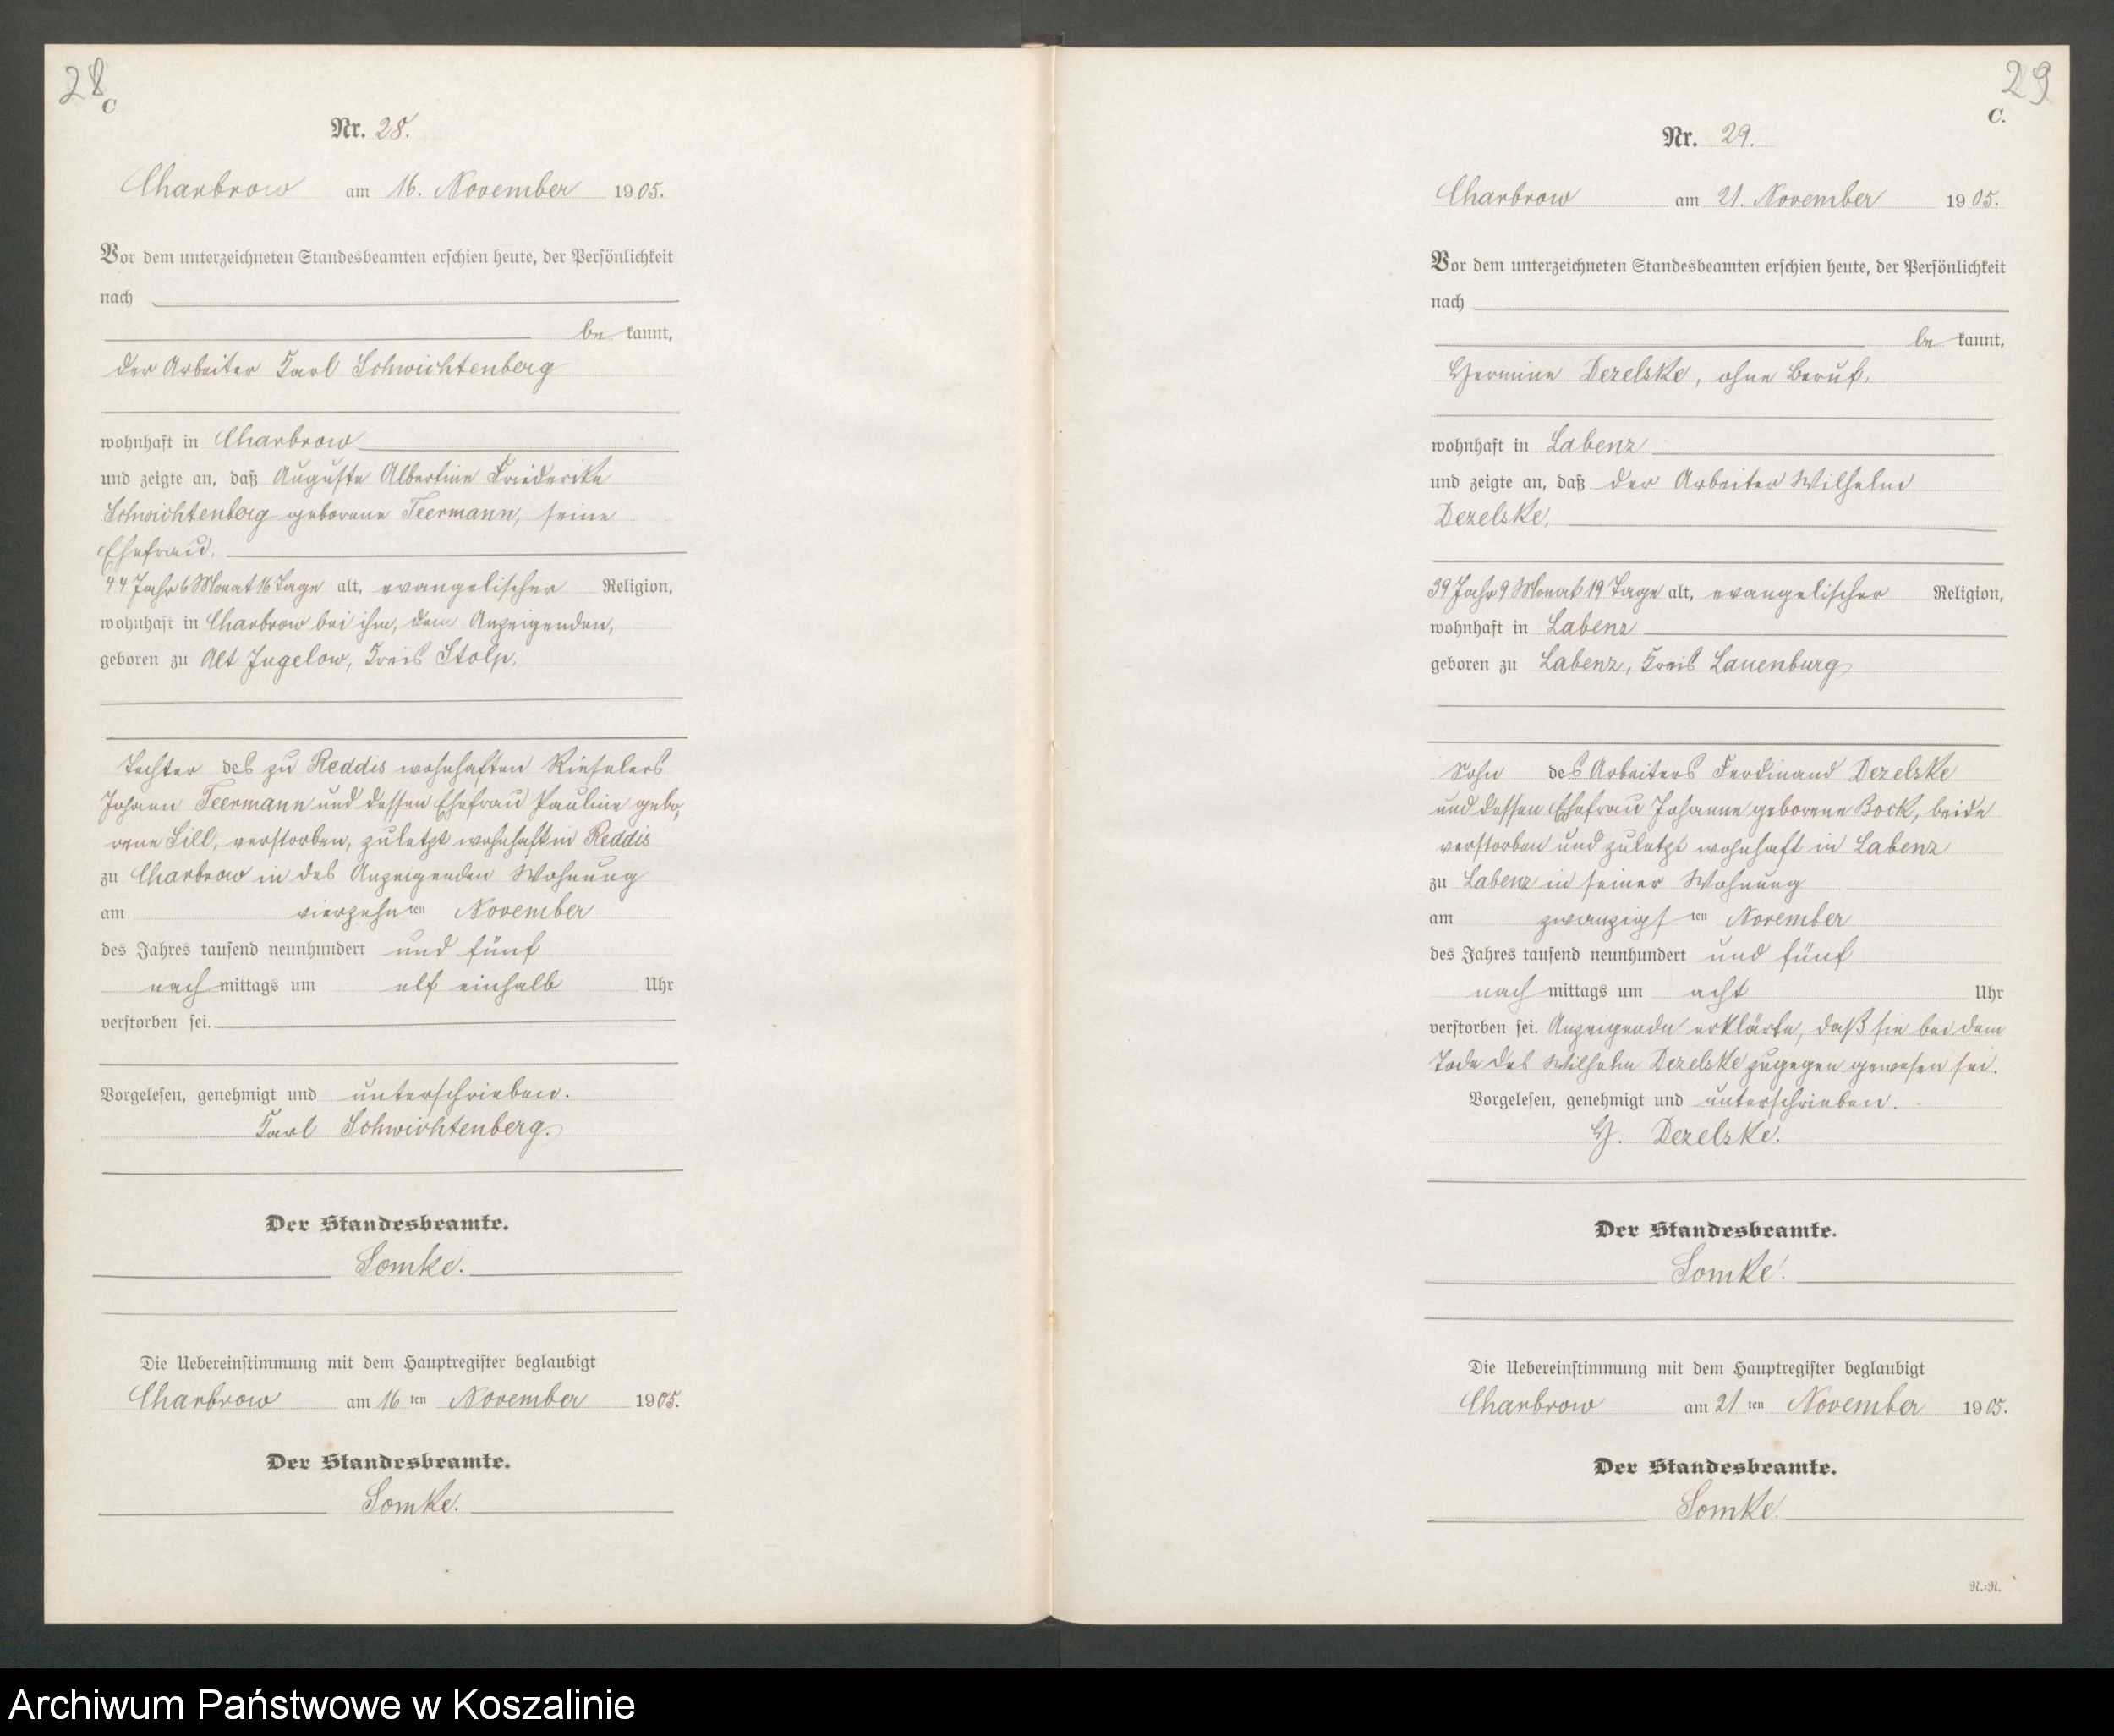 28
C
Nr. 28.
Charbrow am 16. November 1905.
Vor dem unterzeichneten Standesbeamten erschien heute, der Persönlichkeit
nach
be kannt,
der Arbeiter Karl Schwichtenberg
wohnhaft in Charbrow
und zeigte an, daß Auguste Albertine Friederike
Schwichtenberg geborene Teermann, seine
Ehefrau.
44 Jahr 6 Monat 16 Tage alt, evangelischer Religion,
wohnhaft in Charbrow bei ihm, dem Anzeigenden,
geboren zu Alt Jugelow, Kreis Stolp.
Tochter des zu Reddis wohnhaften Rieselers
Johann Teermann und dessen Ehefrau Pauline gebo,
rene Lill, verstorben, zuletzt wohnhaft in Reddis
zu Charbrow in des Anzeigenden Wohnung
am vierzehn ten November
des Jahres tausend neunhundert und fünf
nach mittags um elf einhalb Uhr
verstorben sei.
Vorgelesen, genehmigt und unterschrieben.
Karl Schwichtenberg.
Der Standesbeamte.
Somke.
Die Uebereinstimmung mit dem Hauptregister beglaubigt
Charbrow am 16 ten November 1905.
Der Standesbeamte.
Somke.
29
C.
Nr. 29.
Charbrow am 21. November 1905.
Vor dem unterzeichneten Standesbeamten erschien heute, der Persönlichkeit
nach
be kannt,
Hermine Dezelske, ohne Beruf.
wohnhaft in Labenz
und zeigte an, daß der Arbeiter Wilhelm
Dezelske,
39 Jahr 9 Monat 19 Tage alt, evangelischer Religion,
wohnhaft in Labenz
geboren zu Labenz, Kreis Lauenburg
Sohn des Arbeiters Ferdinand Dezelske
und dessen Ehefrau Johanne geborene Bock, beide
verstorben und zuletzt wohnhaft in Labenz
zu Labenz in seiner Wohnung
am zwanzigs ten November
des Jahres tausend neunhundert und fünf
nach mittags um acht Uhr
verstorben sei. Anzeigende erklärte, daß sie bei dem
Tode des Wilhelm Dezelske zugegen gewesen sei.
Vorgelesen, genehmigt und unterschrieben.
H. Dezelske.
Der Standesbeamte.
Somke.
Die Uebereinstimmung mit dem Hauptregister beglaubigt
Charbrow am 21 ten November 1905.
Der Standesbeamte.
Somke.
R.=R.
Archiwum Państwowe w Koszalinie